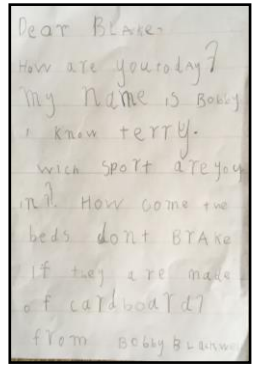 Dear BLAKe.
How are you today?
My Name is Bobby
i know terry.
wich sport are you
in? How come the
beds dont BrAKe
If they are made
of cardboard?
from Bobby